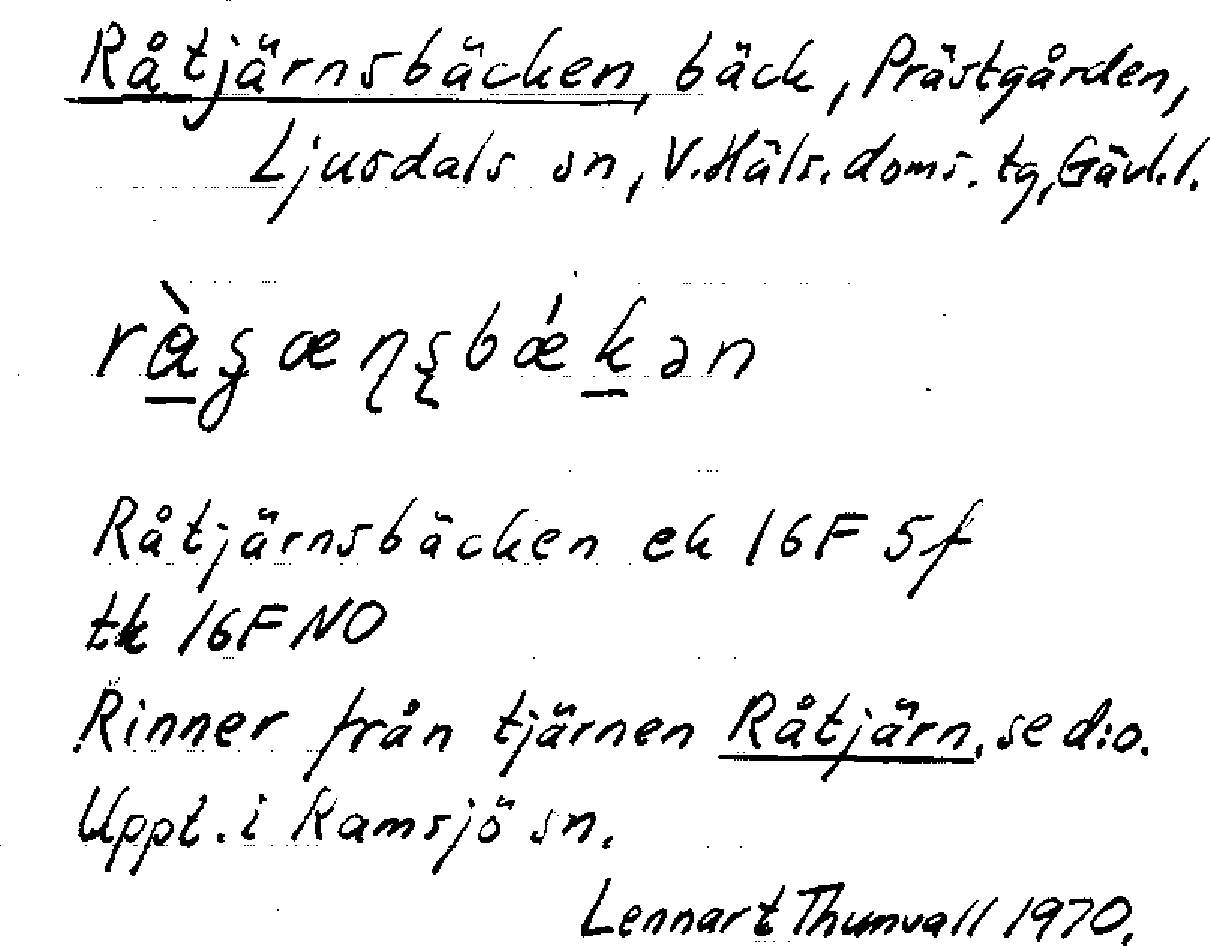 Råtjärnsbäcken, bäck, Prästgården,
Ljusdals sn, V.Häls.doms.tg,Gävl.l.
Råtjärnsbäcken ek 16F 5f
tk 16F NO
Rinner från tjärnen Råtjärn, se d:o.
Uppt. i Ramsjö sn.
Lennart Thunvall 1970.